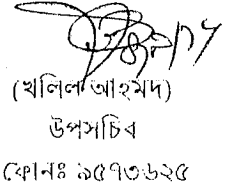 (খলিল আহমদ)
উপসচিব
ফোনঃ ৯৫৭৩৬২৫